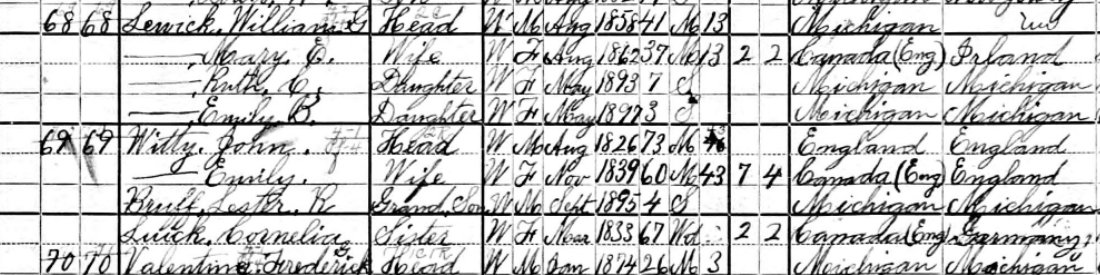 68 68 Lewick, William G Head W M Aug 1858 41 M 13 Michigan
——, Mary E. Wife W F Aug 1862 37 M 13 2 2 Canada (Eng) Irland
——, Ruth C. Daughter W F May 1893 7 S Michigan Michigan
——, Emily B. Daughter W F May 1897 3 S Michigan Michigan
69 69 Witty, John. Head W M Aug 1826 73 M 43 England England
—— Emily. Wife W F Nov 1839 60 M 43 7 4 Canada (Eng) England
Lester, R Grand Son W M Sept 1895 4 S Michigan Michigan
Luick, Cornelia Sister W F Mar 1833 67 Wd 2 2 Canada (Eng) Germany
70 70 Valentine, Frederick G Head W M Jan 1874 26 M 3 Michigan Michigan